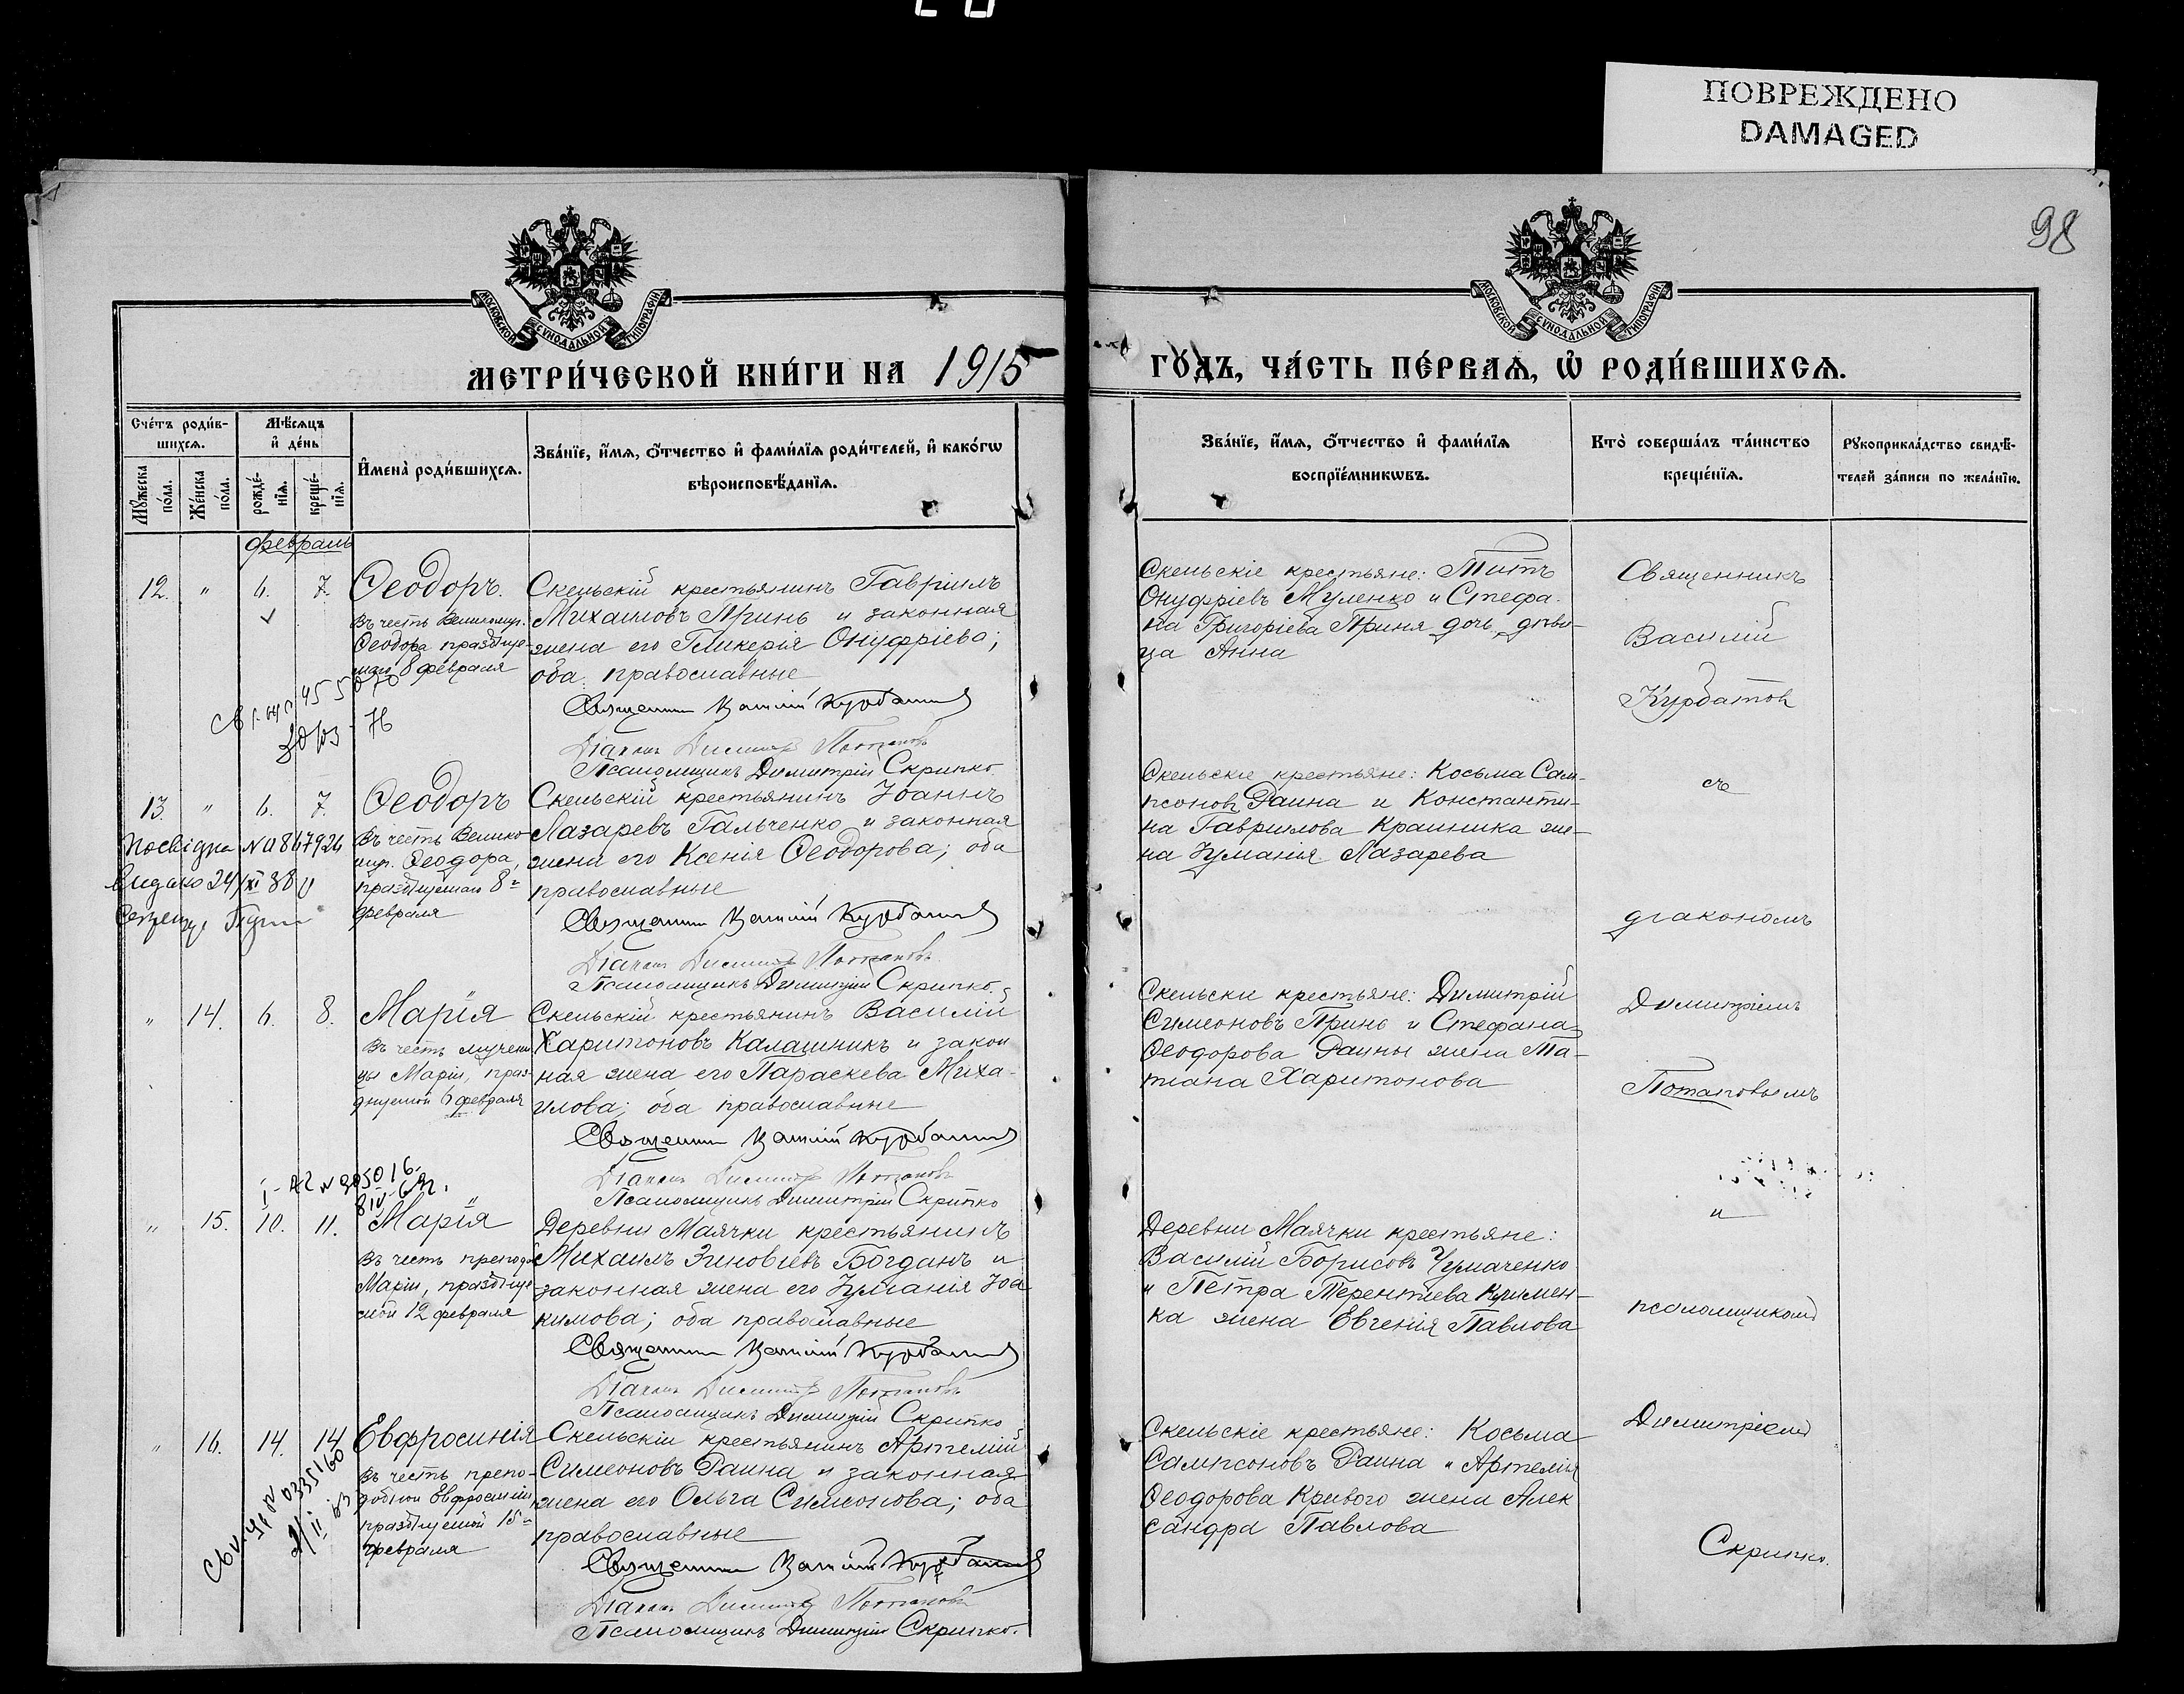 ПОВРЕЖДЕНО
DAMAGED
98
МЕТРИ́ЧЕСКОЙ КНИ́ГИ НА 1915
ГО́ДЪ, ЧА́СТЬ ПЕ́РВАѦ, Ѡ РОДИ́ВШИХСѦ.
Сче́тъ роди́в-
шихсѧ.
Мѣ́сѧцъ
и де́нь
Мꙋ́жеска по́ла.
Же́нска по́ла.
рожде́-
нїѧ.
креще́-
нїѧ.
Имена̀ роди́вшихсѧ.
Зва́нїе, и́мѧ, ѻ́тчество и фами́лїѧ роди́телей, и како́гѡ
вѣроисповѣ́данїѧ.
Зва́нїе, и́мѧ, ѻ́тчество и фами́лїѧ
воспрїе́мникѡвъ.
Кто̀ соверша́лъ та́инство
креще́нїѧ.
Рꙋкоприкла́дство свидѣ́-
телей за́писи по жела́нїю.
февраль
12. " 6. 7. Ѳеодоръ.
Въ честь Великомуч.
Ѳеодора праздnуе-
маго 8 февраля
Скельскій крестьянинъ Гавріилъ
Михаиловъ Принь и законная
жена его Гликерія Онуфріева;
оба православные
Священникъ Василій Курбатовъ
Діаконъ Димитрій Потаповъ
Псаломщикъ Димитрій Скрипко
Скельскіе крестьяне: Титъ
Онуфріевъ Муленко и Стефа-
на Григоріева Приня дочь дѣви-
ца Анна
Священникъ
Василій
Курбатовъ
13. " 6. 7. Ѳеодоръ
Въ честь Велико-
муч. Ѳеодора,
празднуемаго 8го
февраля
Скельскій крестьянинъ Іоаннъ
Лазаревъ Гальченко и законная
жена его Ксенія Ѳеодорова; оба
православные
Священникъ Василій Курбатовъ
Діаконъ Димитрій Потаповъ
Псаломщикъ Димитрій Скрипко.
Скельскіе крестьяне: Косьма Сам-
псоновъ Раина и Константи-
на Гавриилова Крашника же-
на Іуліанія Лазарева
съ
діакономъ
" 14. 6. 8. Марія
Въ честь мучени-
цы Маріи, праз-
днуемой 6 февраля
Скельскій крестьянинъ Василій
Харитоновъ Калашникъ и закон
ная жена его Параскева Миха-
илова; оба православные
Священникъ Василій Курбатовъ
Діаконъ Димитрій Потаповъ
Псаломщикъ Димитрій Скрипко
Скельскіе крестьяне: Димитрій
Симеоновъ Принь и Стефана
Ѳеодорова Раины жена Та-
тіана Харитонова
Димитріемъ
Потаповымъ
" 15. 10. 11. Марія
Въ честь преподоб
Маріи, празднуе
мой 12 февраля
Деревни Маячки крестьянинъ
Михаилъ Зиновіевъ Богданъ и
законная жена его Іуліанія Іоа
кимова; оба православные
Священникъ Василій Курбатовъ
Діаконъ Димитрій Потаповъ
Псаломщикъ Димитрій Скрипко
Деревни Маячки крестьяне:
Василій Борисовъ Чумаченко
и Петра Терентіева
ка жена Евгенія Павлова
и
псаломщикомъ
" 16. 14. 14 Евфросинія
Въ честь препо-
добной Евфросиніи
празднуемой 15го
февраля
Скельскій крестьянинъ Артемій
Симеоновъ Раина и законная
жена его Ольга Симеонова; оба
православные
Священникъ Василій Курбатовъ
Діаконъ Димитрій Потаповъ
Псаломщикъ Димитрій Скрипко.
Скельскіе крестьяне: Косьма
Сампсоновъ Раина и Артемія
Ѳеодорова Кривого жена Алек
сандра Павлова
Димитріемъ
Скрипко.